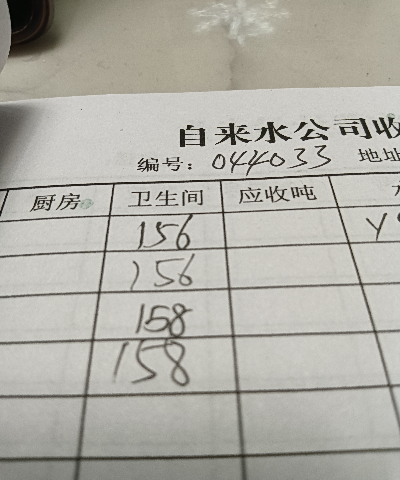 自来水公司收
编号：044033 地址
厨房 卫生间 应收吨
156
156
158
158